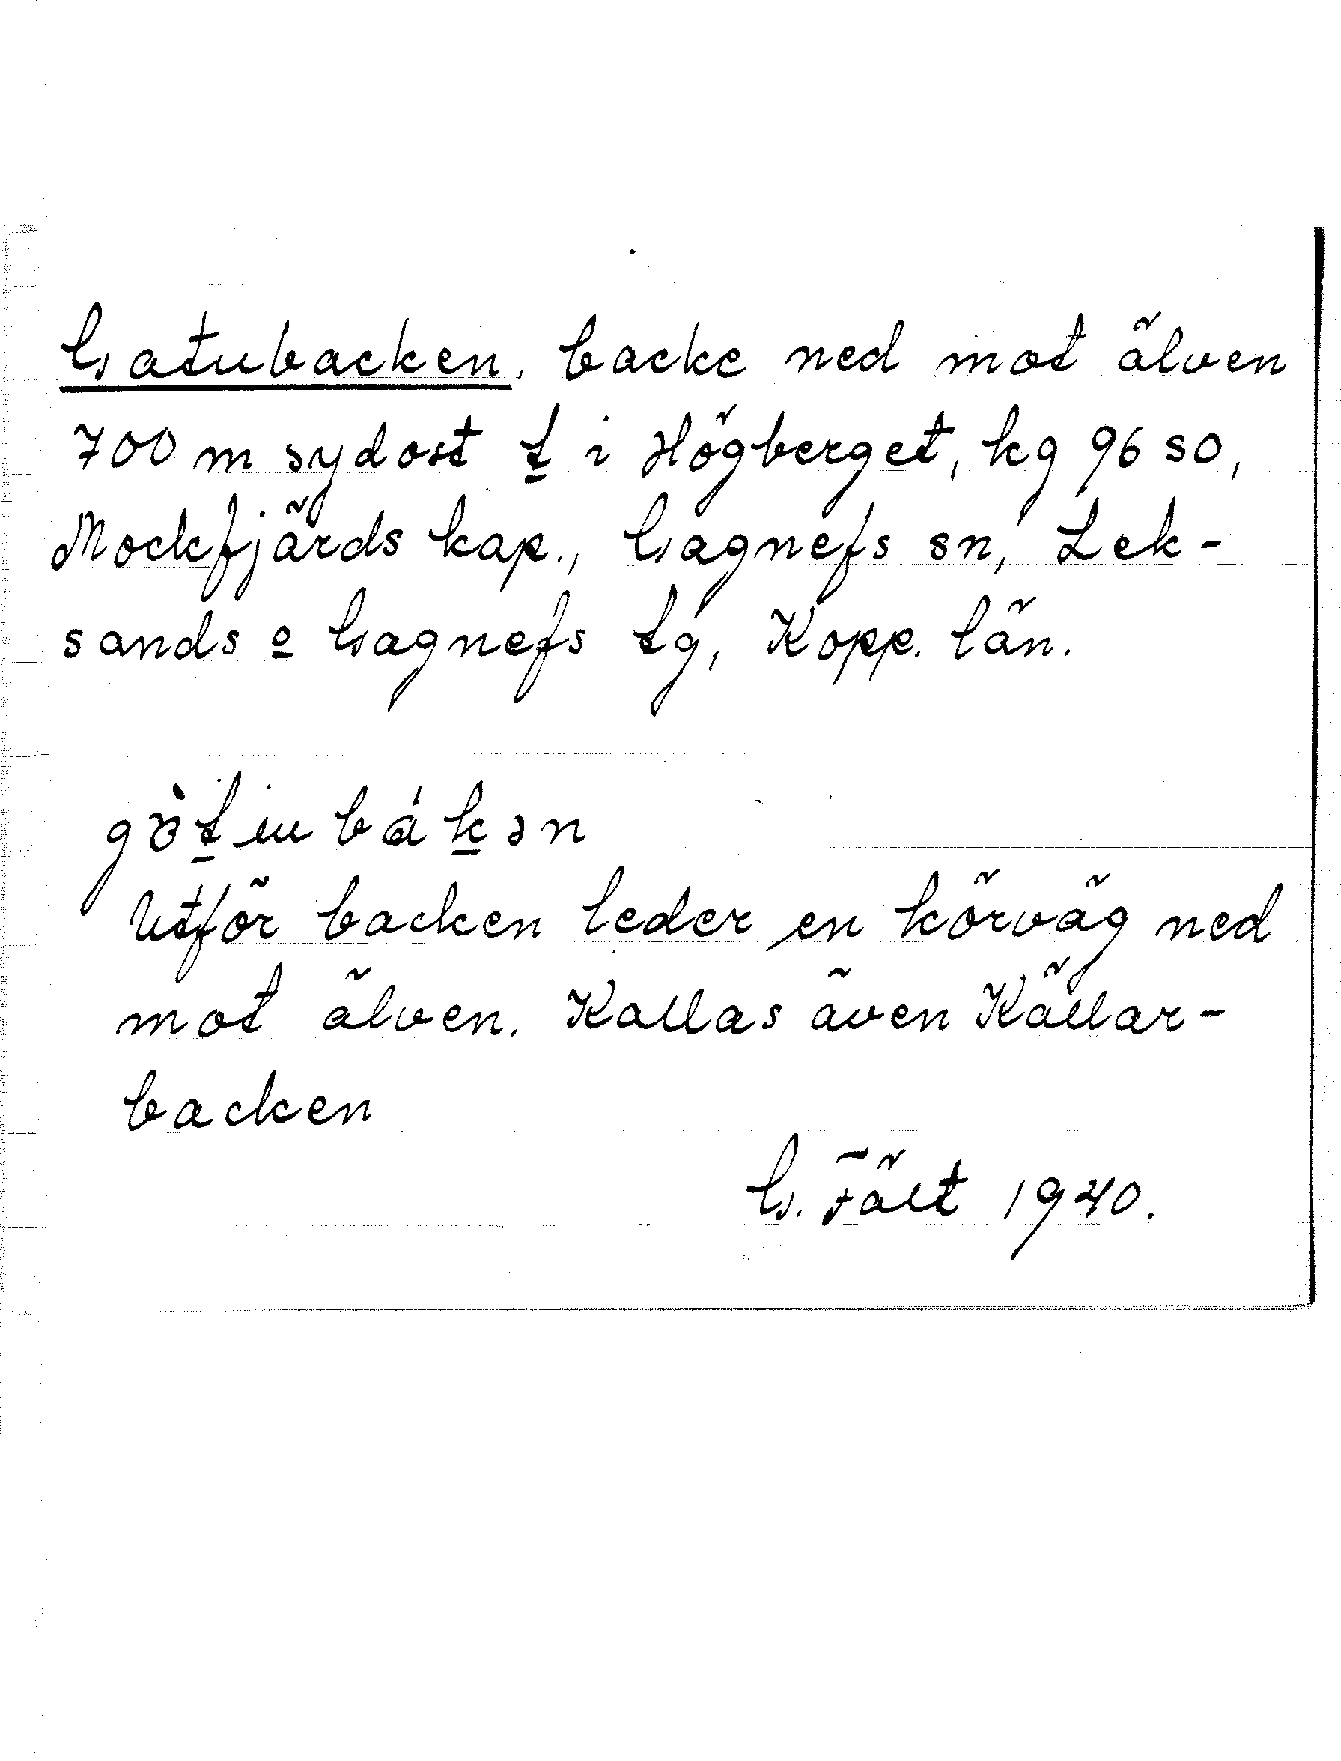 Gatubacken, backe ned mot älven
700 m sydost t i Högberget, kg 96 SO,
Mockfjärds kap., Gagnefs sn, Lek-
sands o Gagnefs tg, Kopp. län.
Utför backen leder en körväg ned
mot älven. Kallas även Källar-
backen
G. Fält 1940.